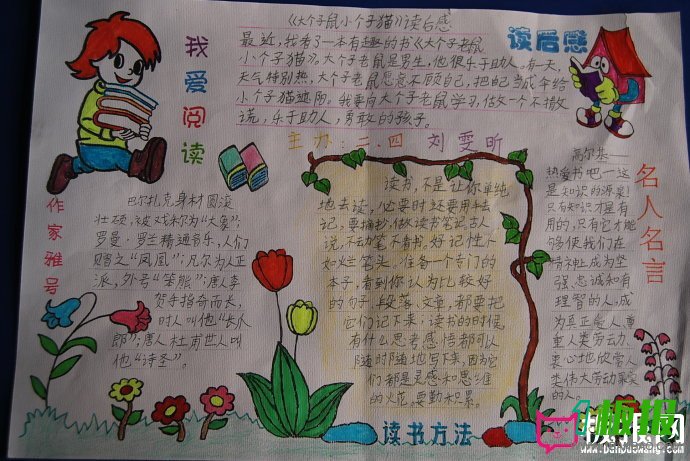 《大个子鼠小个子猫》读后感
最近，我看了一本有趣的书《大个子老鼠
小个子猫》。大个子老鼠是男生，他很乐于助人。有一天，
天气特别热，大个子老鼠愿意不顾自己，把自己当成伞给
小个子猫遮阳。我要向大个子老鼠学习，做一个不撒
谎，乐于助人，勇敢的孩子。
我爱阅读
读后感
主办：二.四 刘雯昕
作家雅号
巴尔扎克身材圆滚
壮硕，被戏称为“大象”；
罗曼·罗兰精通音乐，人们
赐之“凤凰”；凡尔为人正
派，外号“笨熊”；唐人李
贺手指奇而长，
时人叫他“长爪
郎”；唐人杜甫世人叫
他“诗圣”。
读书，不是让你单纯
地去读，必要时还要用手去
记，要摘抄，做读书笔记。古人
说，不动笔不看书。好记性不
如烂笔头。准备一个专门的
本子，看到你认为比较好
的句子、段落、文章，都要把
它们记下来；读书的时候，
有什么思考感悟都可以
随时随地写下来，因为它
们都是灵感和思维
的火花。要勤积累。
读书方法
名人名言
高尔基——
热爱书吧——这
是知识的源泉！
只有知识才是有
用的，只有它才能
够使我们在
精神上成为坚
强、忠诚和有
理智的人，成
为真正爱人、尊
重人类劳动、
衷心地欣赏人
类伟大劳动果实
的人。
板报网
www.banbaowang.com